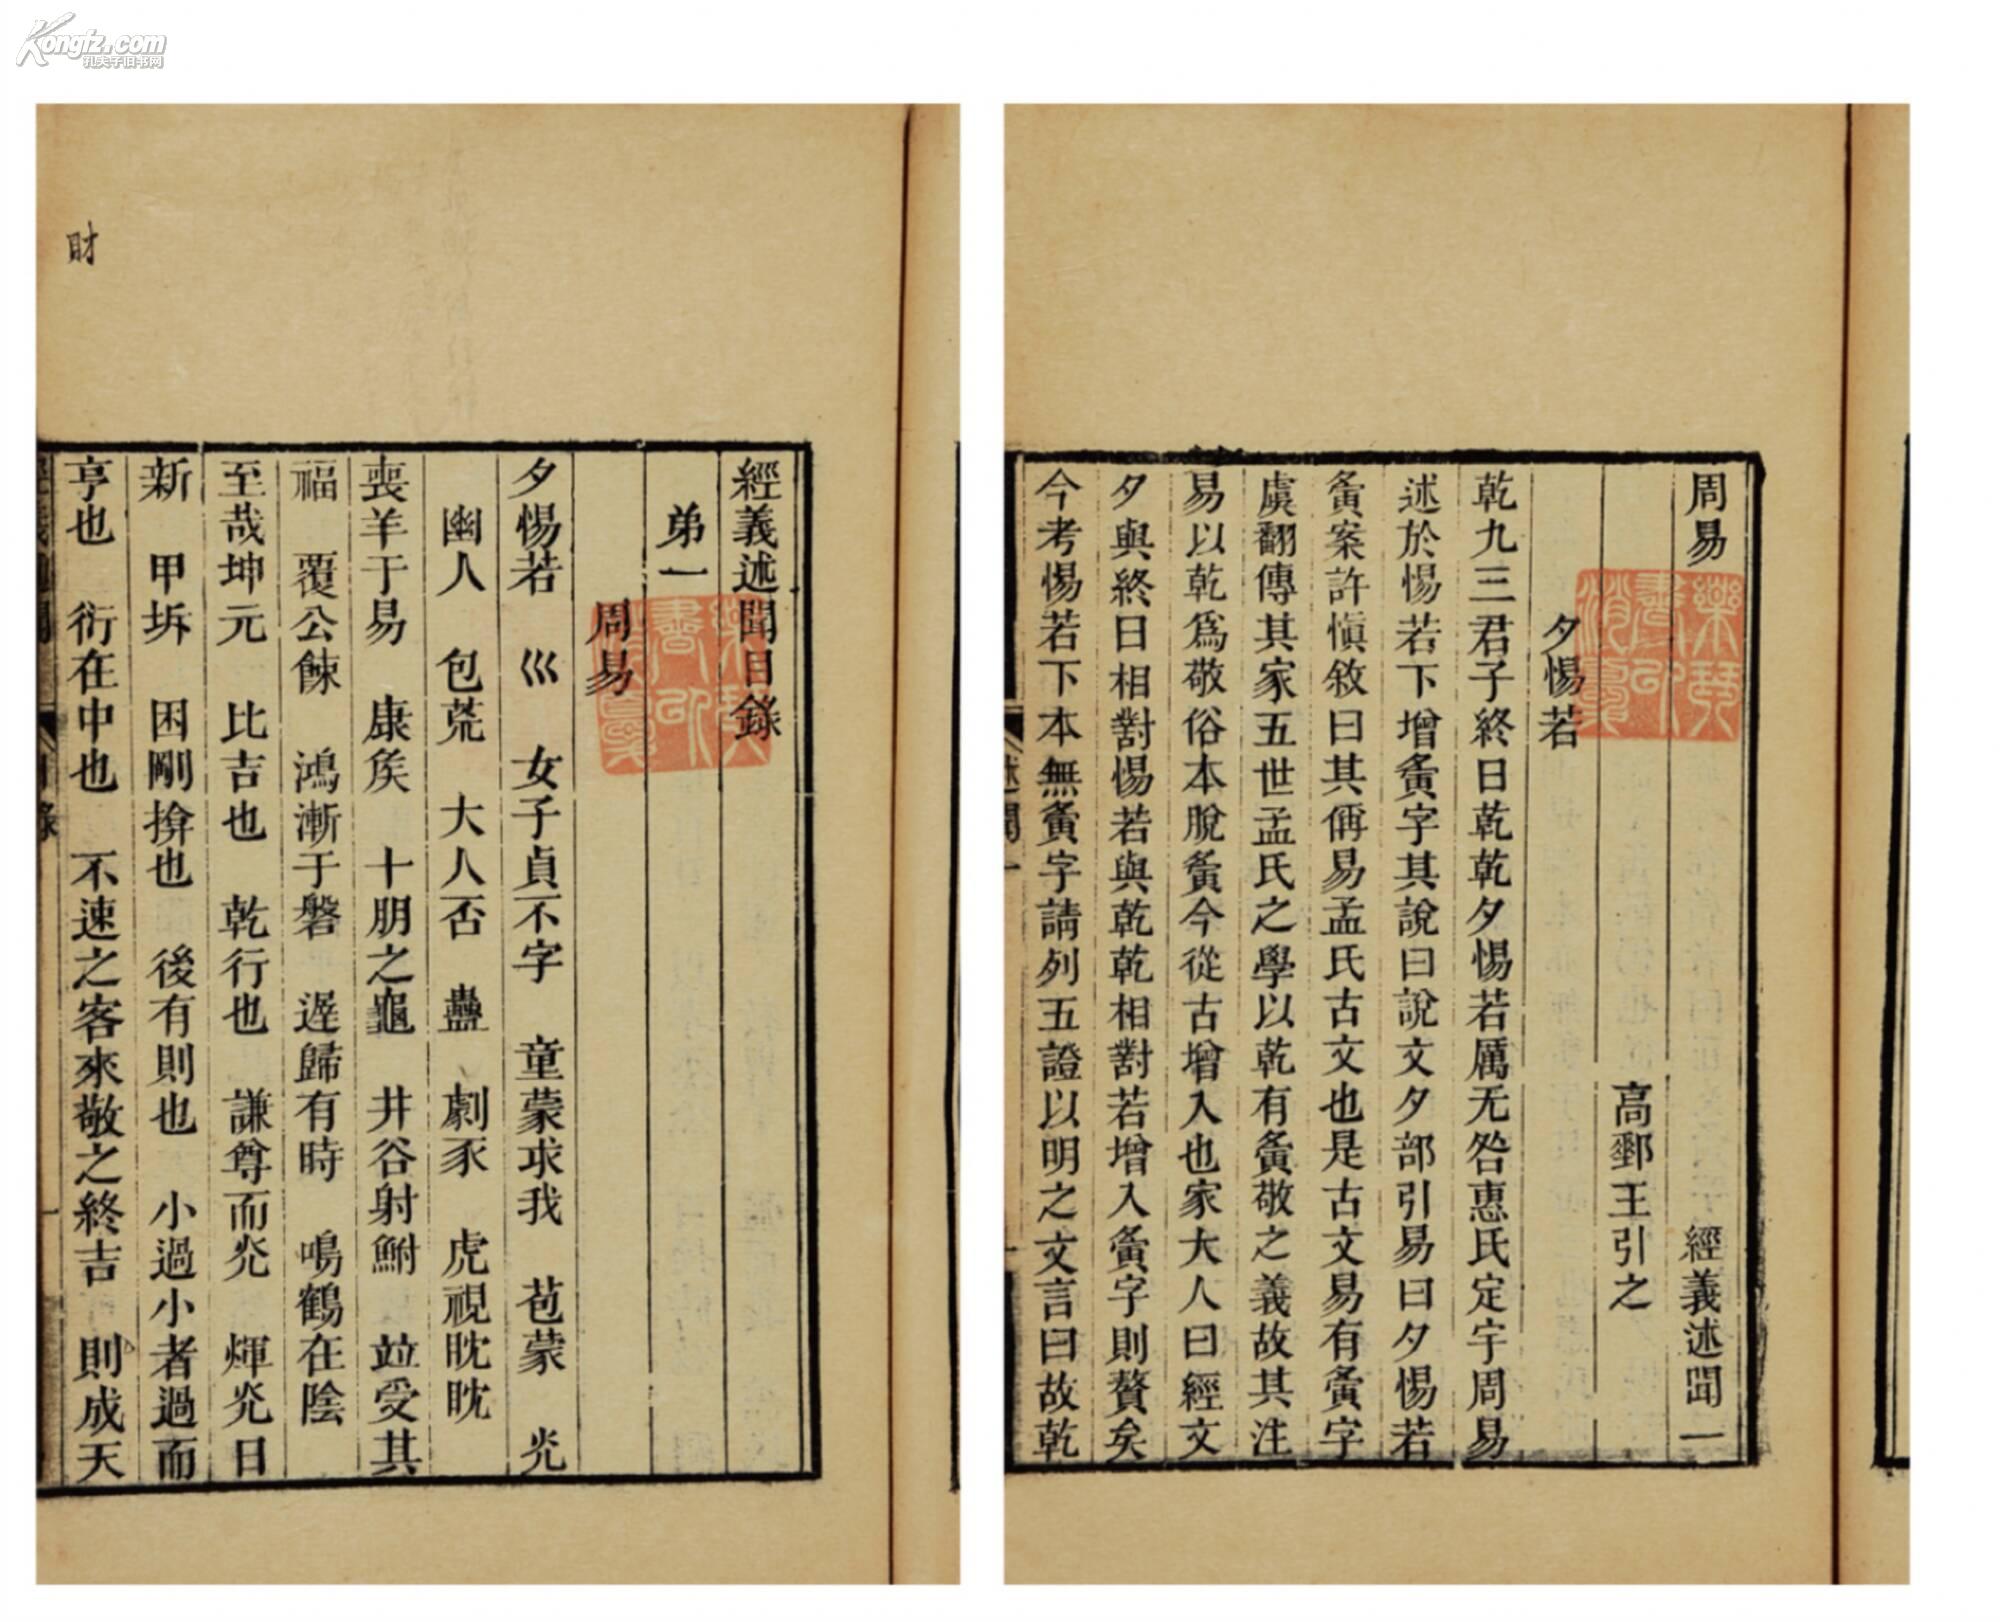 Kongfz.com
孔夫子旧书网
財
經義述聞目錄
弟一
周易
夕惕若 巛 女子貞不字 童蒙求我 苞蒙 灮
幽人 包荒 大人否 蠱 劇豕 虎視眈眈
喪羊于易 康矦 十朋之龜 井谷射鮒 竝受其
福 覆公餗 鴻漸于磐 遟歸有時 鳴鶴在陰
至哉坤元 比吉也 乾行也 謙尊而灮 煇灮日
新 甲坼 困剛揜也 後有則也 小過小者過而
亨也 衍在中也 不速之客來敬之終吉 則成天
周易 經義述聞一
樂琴書以消憂
高郵王引之
夕惕若
乾九三君子終日乾乾夕惕若厲无咎惠氏定宇周易
述於惕若下增夤字其說曰說文夕部引易曰夕惕若
夤案許慎敘曰其偁易孟氏古文也是古文易有夤字
虞翻傳其家五世孟氏之學以乾有夤敬之義故其注
易以乾爲敬俗本脫夤今從古增入也家大人曰經文
夕與終日相對惕若與乾乾相對若增入夤字則贅矣
今考惕若下本無夤字請列五證以明之文言曰故乾